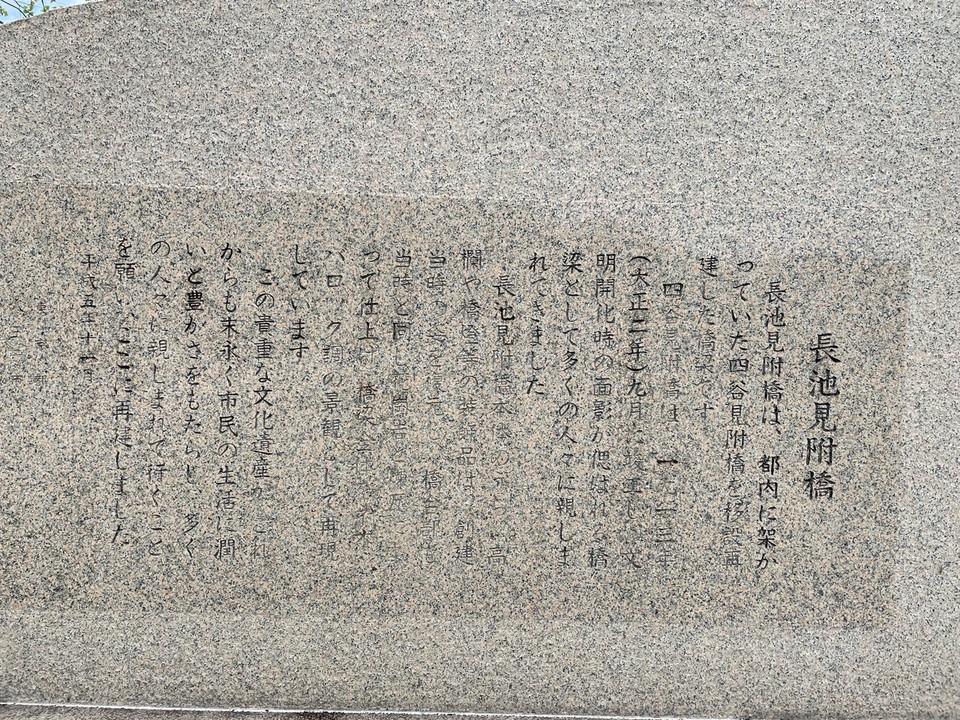 長池見附橋
長池見附橋は、都内に架か
っていた四谷見附橋を移設再
建した橋梁です
四谷見附橋は 一九一三年
(大正二年)九月に竣工し 文
明開化時の面影が偲ばれる橋
梁として多くの人々に親しま
れてきました
長池見附橋本体の 高
欄や橋燈等の装飾品は 創建
当時の姿を復元し 橋台部は
当時と同じ花崗岩と煉瓦
って仕上げ 橋梁全体
バロック調の景観として再現
しています
この貴重な文化遺産が これ
からも末永く市民の生活に潤
いと豊かさをもたらし、多く
の人々に親しまれて行くこと
を願い ここに再建しました
平成五年十一月